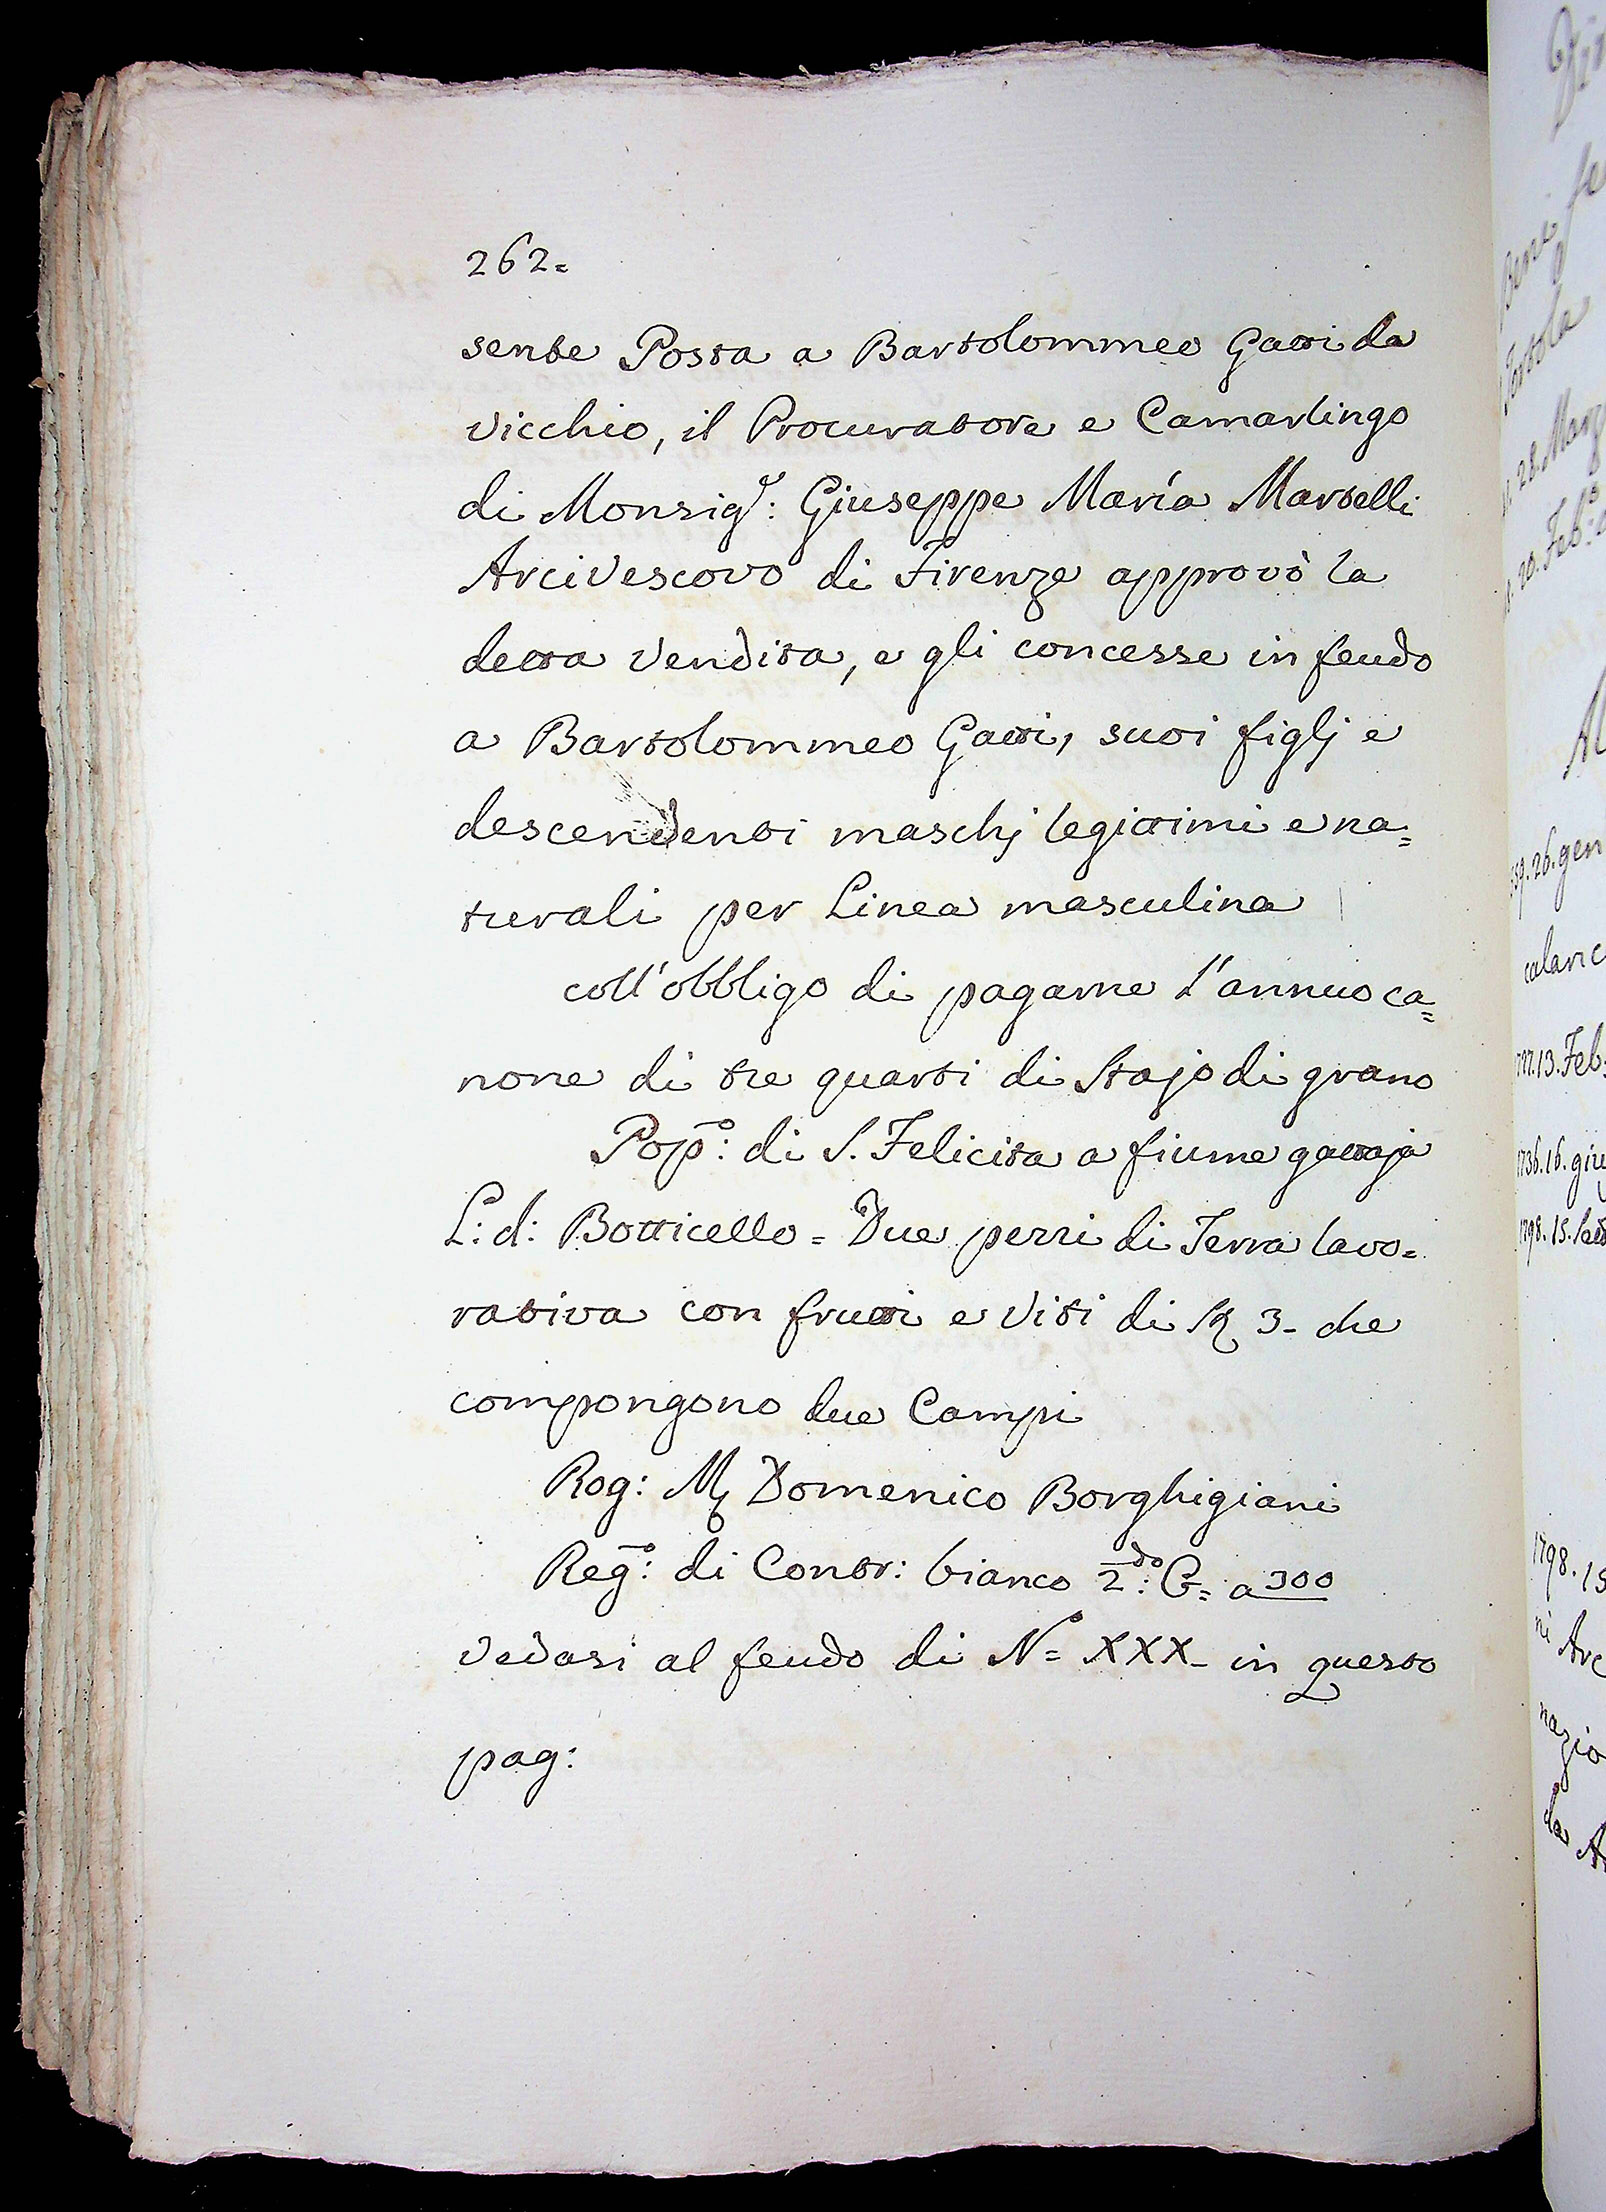 262=
sente Posta a Bartolommeo Gatti da
Vicchio, il Procuratore e Camarlingo
di Monsig.e: Giuseppe María Martelli
Arcivescovo di Firenze approvò la
detta Vendita, e gli concesse in feudo
a Bartolommeo Gatti, suoi figlj e
descendenti maschj legittimi e na=
turali per Linea masculina
coll'obbligo di pagarne l'annuo ca=
none di tre quarti di Stajo di grano
Pop.o: di S. Felicita a fiume gattaja
L: d: Botticello = Due pezzi di Terra lavo=
rativa con frutti e Viti di St 3- che
compongono due Campi
Rog: M Domenico Borghigiani
Reg.o: di Contr: bianco 2.do: G= a 300
Vedasi al feudo di N= XXX- in questo
pag:
28. Marz
20. Feb.o:
26. gen
13. Feb:
1736. 16. giu
1798. 15.
1798. 15